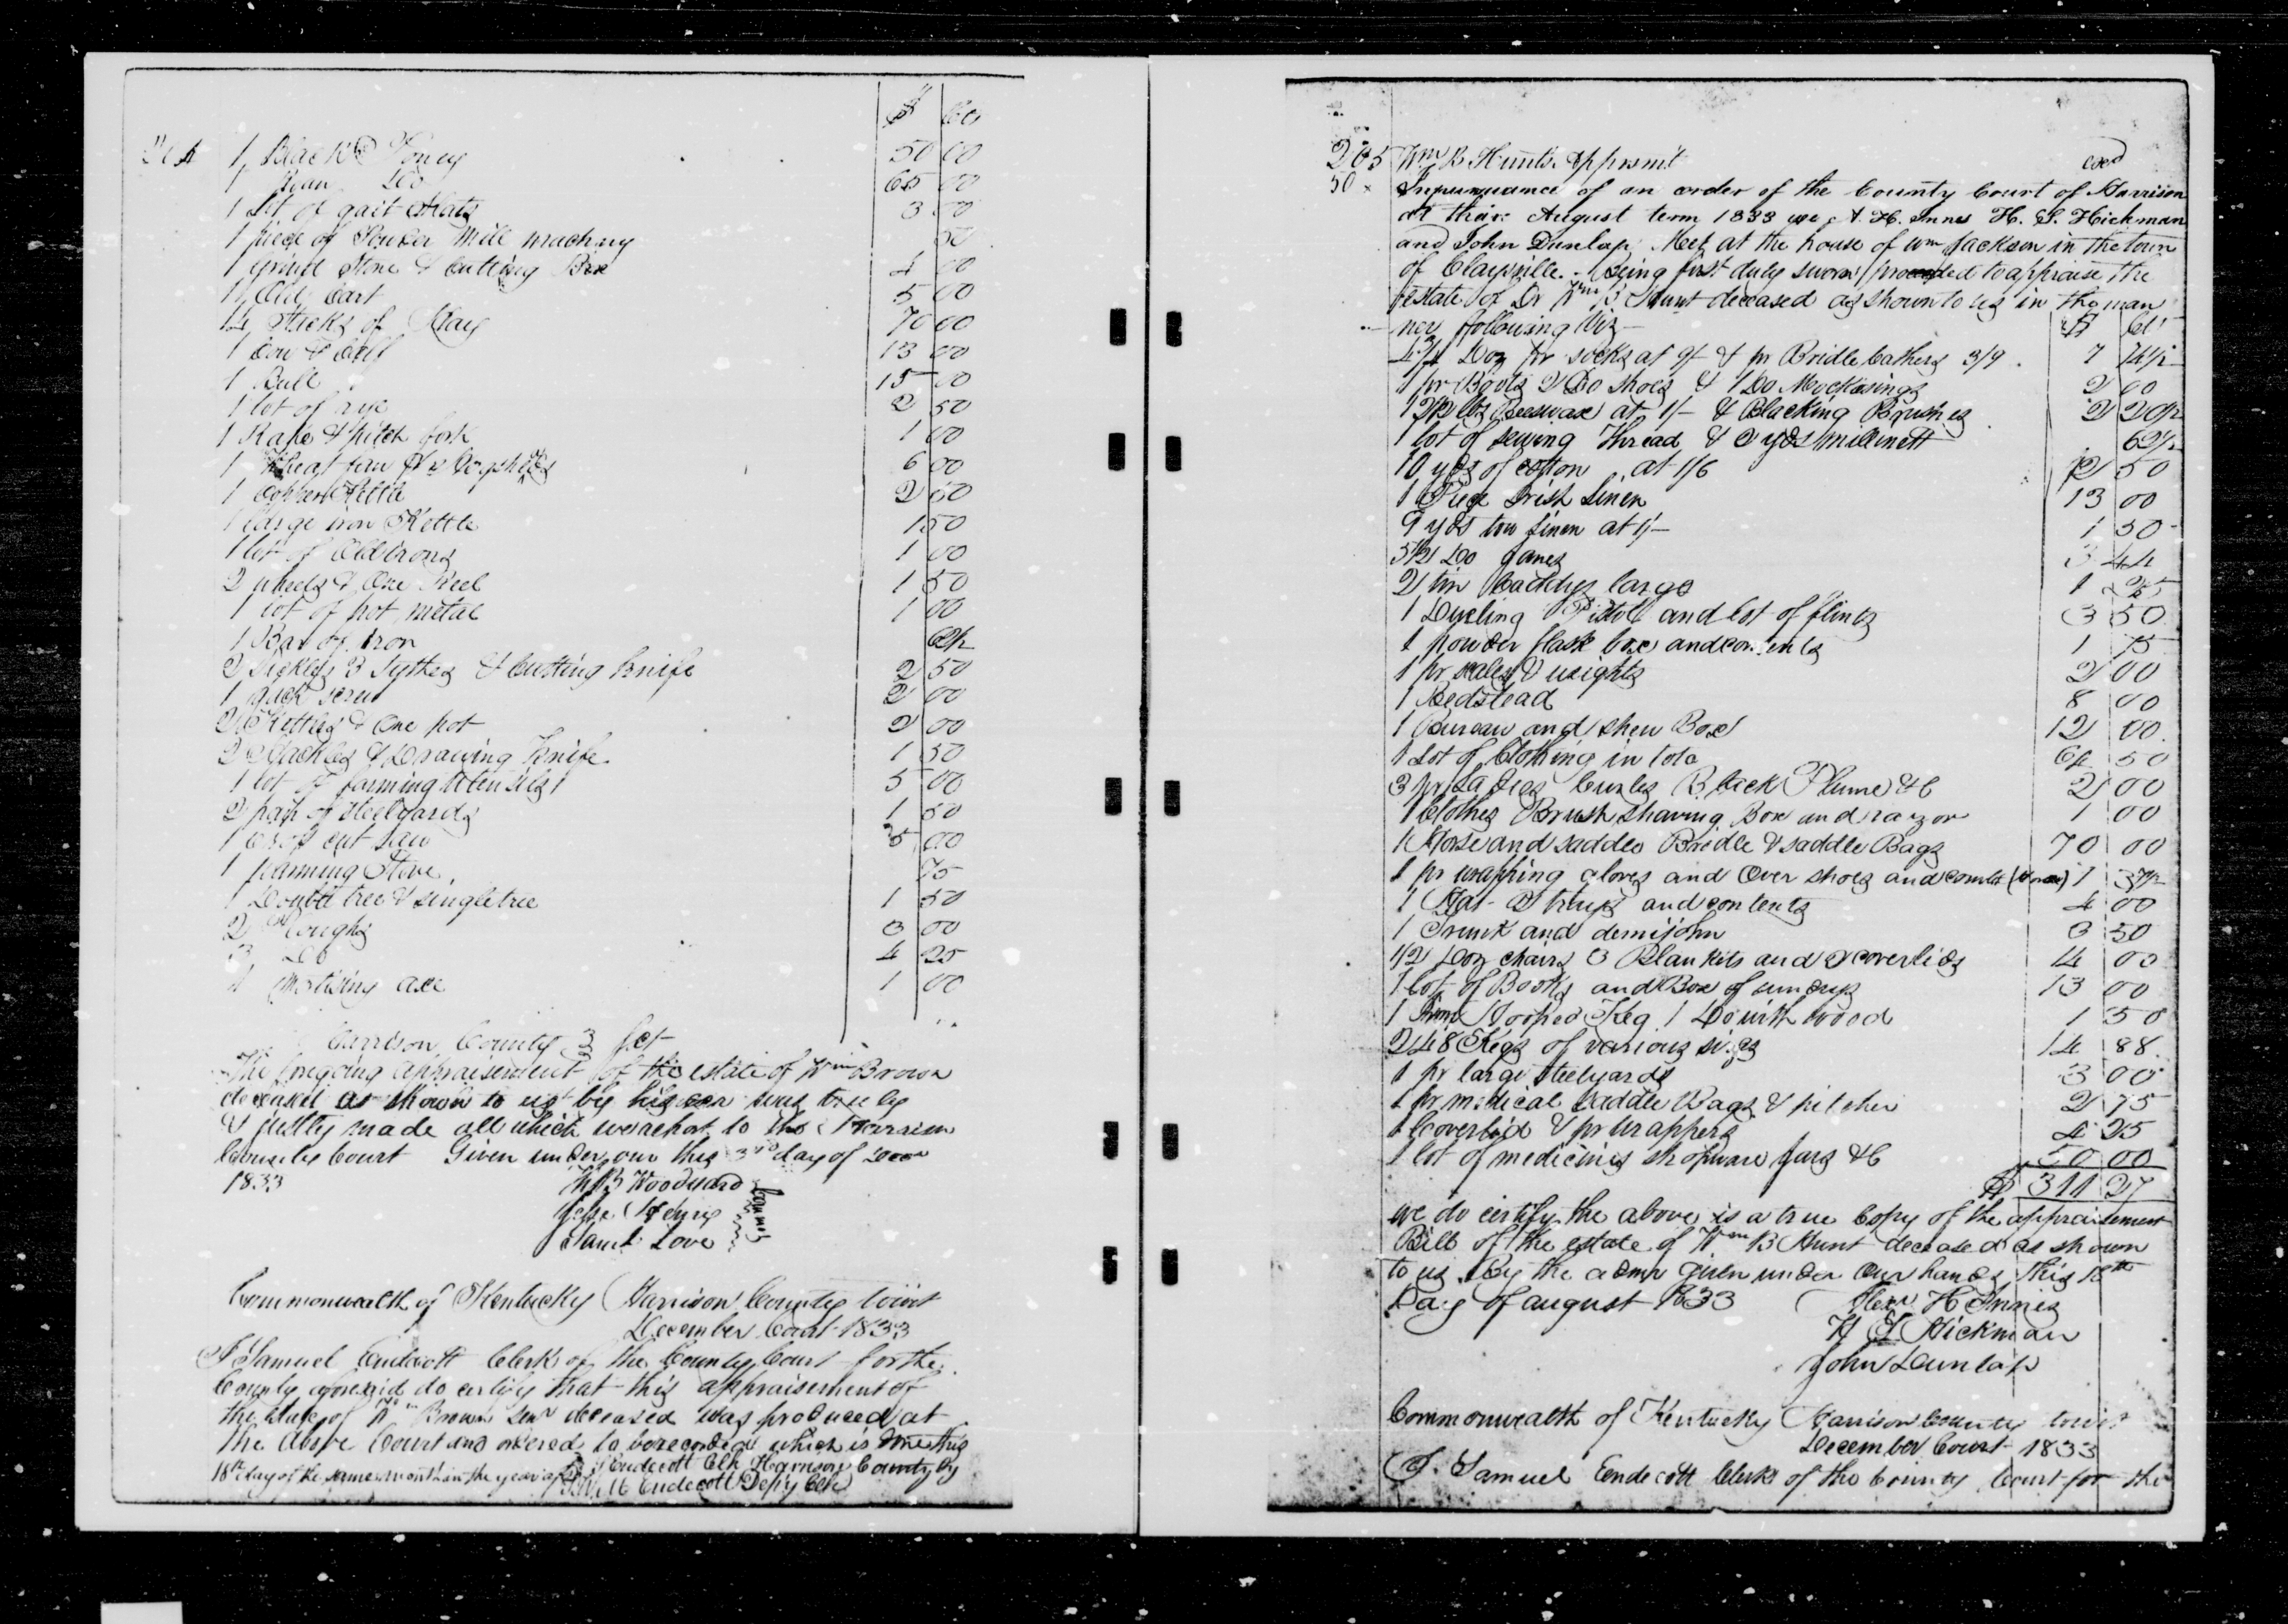 $ Cts
264 1 Black Poney 50 00
1 Roan Do 65 00
1 Lot of 3 00
1 piece of Powder Mill machny 50
1 Grind Stone & Cutting Box 4 00
1 Old Cart 5 00
Stacks of Hay 70 00
1 Cow & Calf 13 00
1 Bull 15 00
1 lot of rye 2 50
1 Rake & pitch fork 1 00
1 Wheat fan 6 00
1 Copper Kettle 2 50
1 large iron Kettle 1 50
1 lot of Old irons 1 00
2 wheels & One Reel 1 50
1 lot of pot metal 1 00
1 Bar of iron 62½
2 Sickles 3 Sythes & Cutting knife 2 50
1 jack screw 2 00
2 Kettles & One pot 2 00
2 & Drawing Knife 1 50
1 lot of farming utensils 5 00
2 pair of Steelyards 1 50
1 cross cut saw 5 00
1 Stove 75
1 Double tree & singletree 1 50
2 Ploughs 3 00
3 Do 4 25
1 Mortising axe 1 00
Harrison County Sct
The foregoing appraisement of the estate of Wm Brown
deceased as shown to us by his was truly
& justly made all which we report to the Harrison
County Court Given under our this 3rd day of
1833 Woodward
Jesse Henry
Saml Love
Commonwealth of Kentucky Harrison County towit
December Court 1833
I Samuel Endecott Clerk of the County Court for the
County aforesaid do certify that this appraisement of
the estate of Wm Brown Senr deceased was produced at
the above Court and ordered to be recorded which is done this
18th day of the same month in the year S Endecott Clk Harrison County by
Endecott Depy Clk
265 Wm B Hunts Apprsmt
50 x In pursuance of an order of the County Court of Harrison
at their August term 1833 we A. H. Innes H. S. Hickman
and John Dunlap Meet at the house of Wm Jackson in the town
of Claysville. Being first duly sworn proceeded to appraise the
estate of Dr Wm B Hunt deceased as shown to us in the man
ner following Viz $ Cts
Doz pr socks at 9/ & pr Bridle 3/9 7
1 pr Boots 2 Do Shoes & 1 Do Mockasings 2 00
lbs Beeswax at 1/- & Blacking Brushes 2
1 lot of sewing Thread & yds millinett 62½
10 yds of cotton at 1/6 2 50
1 Piece Irish Linen 13 00
9 yds tow linen at 1/- 1 50
5½ Do janes 3 44
2 tin Caddys large 1 25
1 Dueling Pistol and lot of flints 3 50
1 powder flask box and contents 1 75
1 pr scales & weights 2 00
1 Bedstead 8 00
1 Bureau and shew Box 12 00
1 Lot of Clothing in toto 50
3 pr Ladies Curles Black Plume &C 2 00
1 Clothes Brush Shaving Box and razor 1 00
1 Horse and saddle Bridle & saddle Bags 70 00
1 pr wrapping gloves and Over shoes and comb 1 37½
1 Hat & contents 4 00
1 Trunk and demijohn 3 50
1/2 Doz chairs 3 Blankits and coverlids 4 00
1 lot of Books and Box of sundrys 13 00
1 Hooped Keg 1 Do with wood 1 50
Kegs of various sizes 14 88
1 pr large steelyards 3 00
1 pr medical saddle Bags & pitcher 2 75
1 Coverlid & pr wrappers 4 25
1 lot of medicines shopware jars &C 50 00
$ 311 27
we do certify the above is a true Copy of the appraisement
Bill of the estate of Wm B Hunt deceased as shown
to us By the admr given under our hands this
Day of august 1833 Alexr H Innes
H S Hickman
John Dunlap
Commonwealth of Kentucky Harrison County towit
December Court 1833
I Samuel Endecott Clerk of the County Court for the